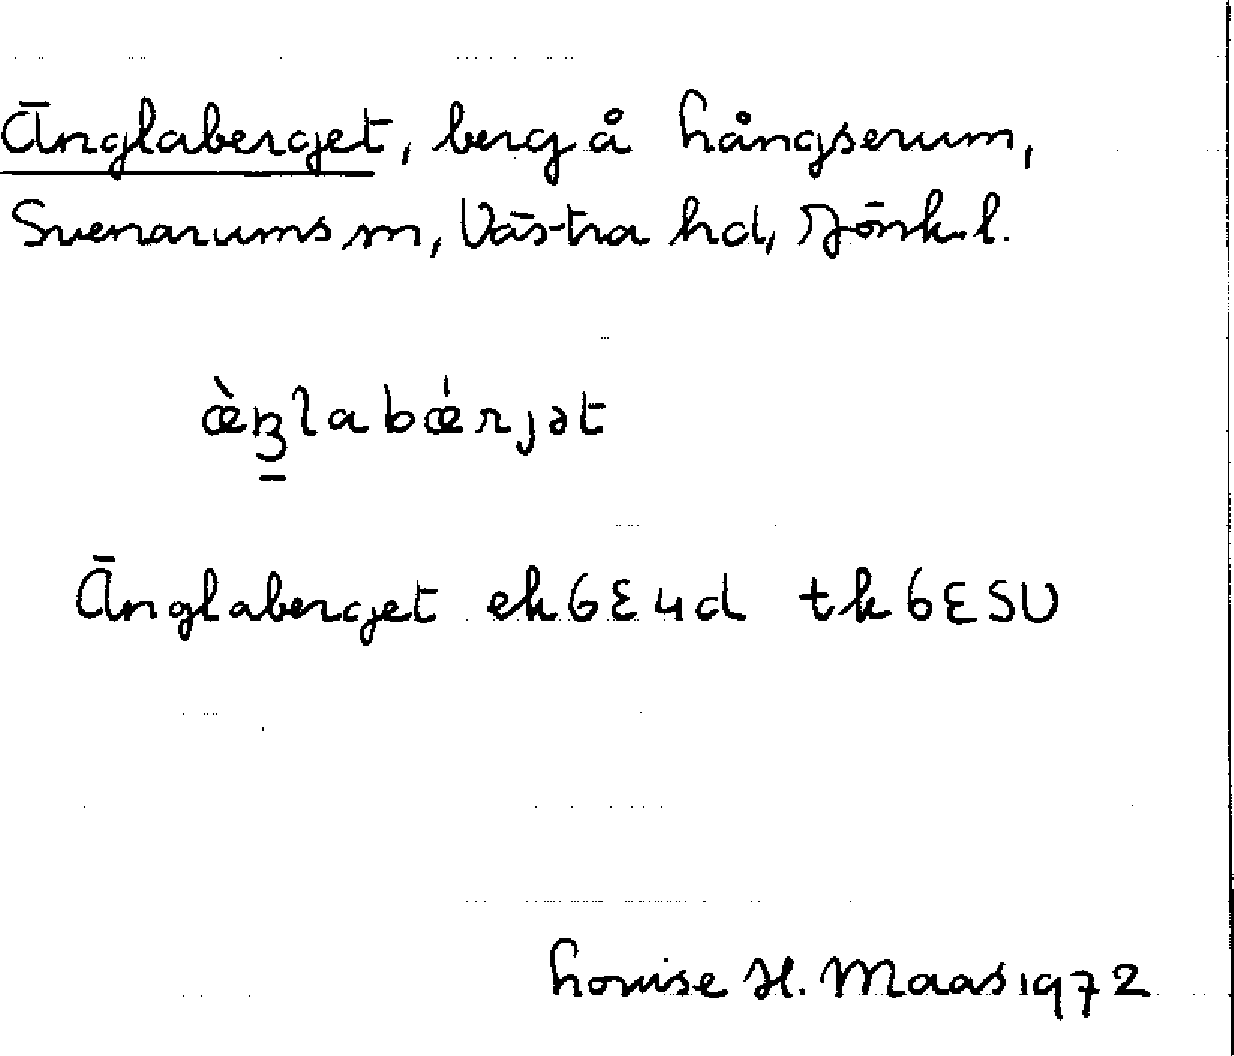 Änglaberget, berg å Långserum,
Svenarums sn, Västra hd, Jönk. l.
Änglaberget ek 6E4d tk 6ESU
Louise H. Maas 1972